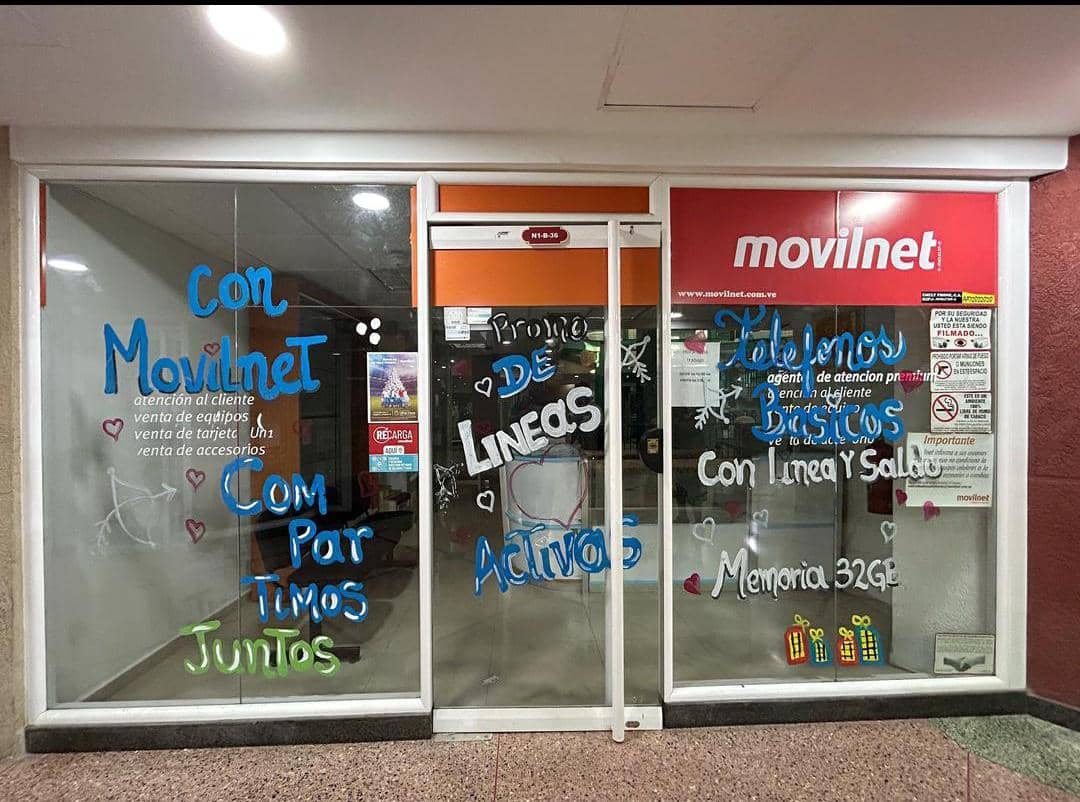 Con
MovilneT
atención al cliente
venta de equipos
venta de tarjeta Un1
venta de accesorios
Com
Par
Timos
JunTos
RECARGA
AQUÍ
N1-B-36
Promo
DE
LINEAS
ACTIVAS
movilnet
www.movilnet.com.ve
Telefonos
agente de atencion premium
atención al cliente
Basicos
Con Linea Y Saldo
Memoria 32GB
POR SU SEGURIDAD
Y LA NUESTRA
USTED ESTA SIENDO
FILMADO...
PROHIBIDO PORTAR ARMAS DE FUEGO
O MUNICIONES
EN ESTE ESPACIO
ESTE ES UN
AMBIENTE
100%
LIBRE DE HUMO
DE TABACO
Importante
movilnet